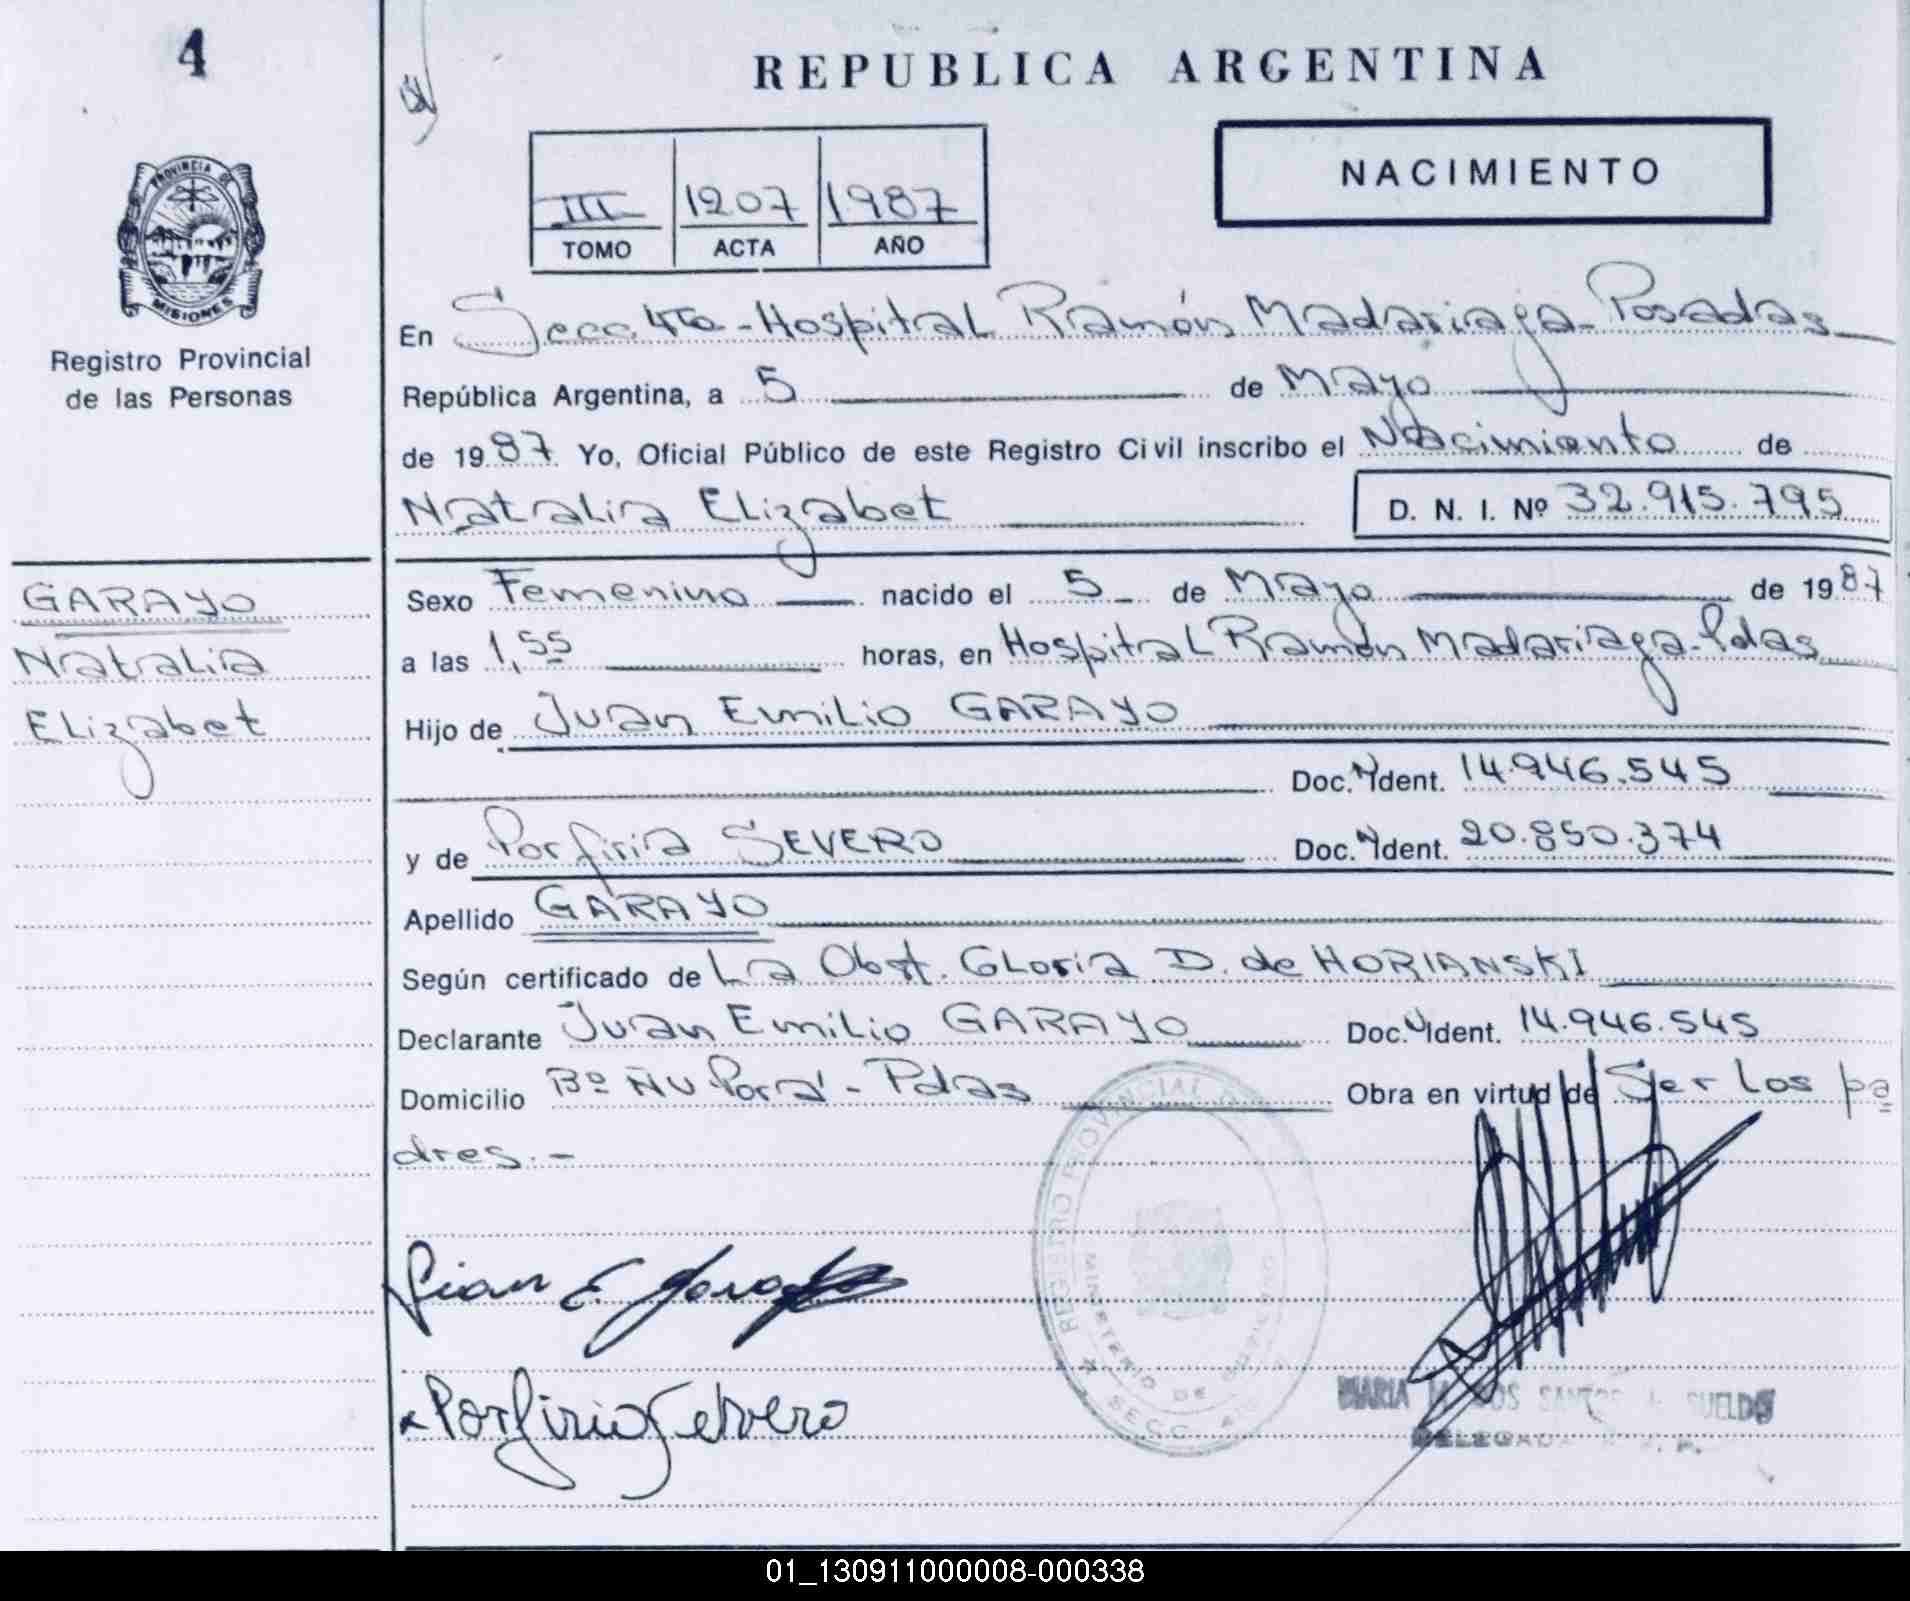 4
REPUBLICA ARGENTINA
NACIMIENTO
III 1207 1987
TOMO ACTA AÑO
PROVINCIA DE
MISIONES
Registro Provincial
de las Personas
En Secc 4ta - Hospital Ramón Madariaga - Posadas
República Argentina, a 5 de Mayo
de 1987 Yo, Oficial Público de este Registro Civil inscribo el Nacimiento de
Natalia Elizabet D. N. I. Nº 32.915.795
GARAYO
Natalia
Elizabet
Sexo Femenino nacido el 5 de Mayo de 1987
a las 1,55 horas, en Hospital Ramón Madariaga - Pdas
Hijo de Juan Emilio GARAYO
Doc. N Ident. 14.946.545
y de Porfiria SEVERO Doc. N Ident. 20.850.374
Apellido GARAYO
Según certificado de La Obst. Gloria D. de HORIANSKI
Declarante Juan Emilio GARAYO Doc. N Ident. 14.946.545
Domicilio Bº Ñu Porá - Pdas Obra en virtud de Ser los pa
dres.-
REGISTRO PROVINCIAL
MINISTERIO DE
SECC. 4
Juan E. Garayo
Porfiria Severo
MARIA M DOS SANTOS SUELDO
DELEGADA
01_130911000008-000338